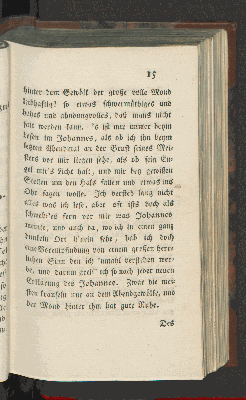 15
hinter dem Gewölk der große volle Mond
leibhaftig! so etwas schwermüthiges und
hohes und ahndungvolles, daß mans nicht
satt werden kann. 's ist mir immer beym
Lesen im Johannes, als ob ich ihn beym
letzten Abendmal an der Brust seines Mei-
sters vor mir liegen sehe, als ob sein En-
gel mir's Licht halt, und mir bey gewissen
Stellen um den Hals fallen und etwas ins
Ohr sagen wolle. Ich versteh lang nicht
alles was ich lese, aber oft ists doch als
schwebt'es fern vor mir was Johannes
meinte, und auch da, wo ich in einen ganz
dunkeln Ort h'nein sehe, hab ich doch
eine Vorempfindung von einem großen herr-
lichen Sinn den ich 'nmahl verstehen wer-
de, und darum greif' ich so nach jeder neuen
Erklärung des Johannes. Zwar die mei-
sten kräuseln nur an dem Abendgewölke, und
der Mond hinter ihm hat gute Ruhe.
Des